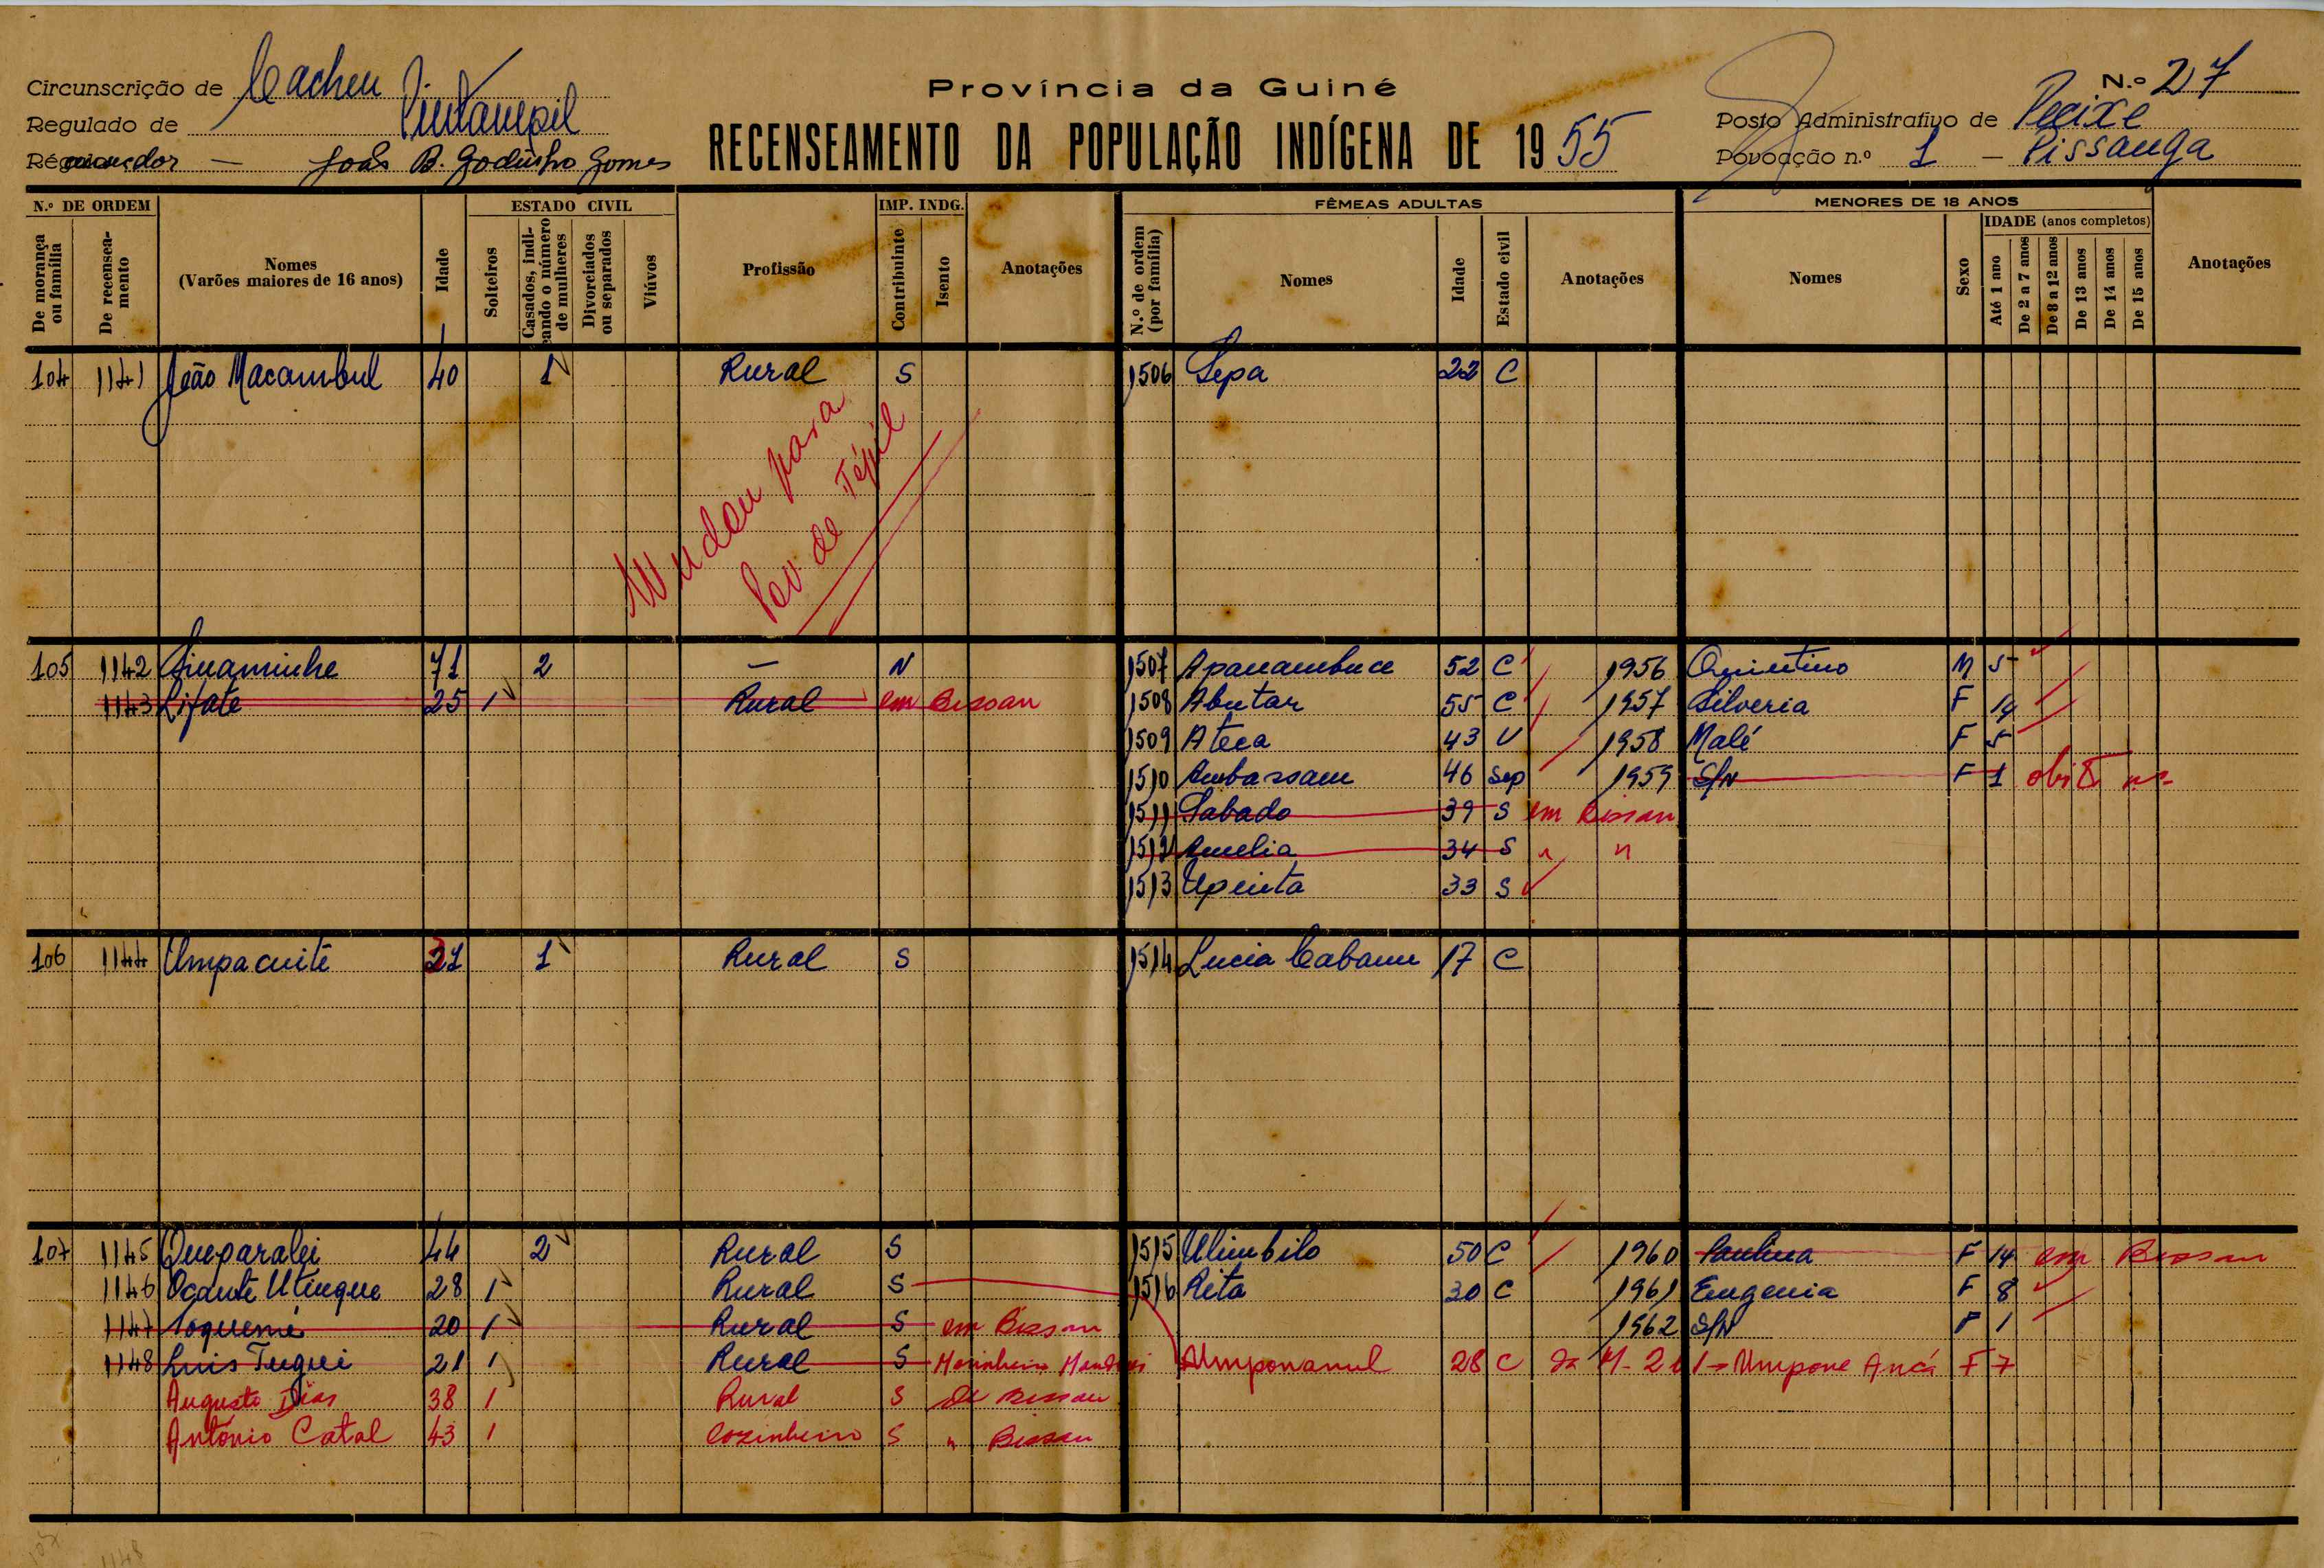 Circunscrição de Cacheu
Regulado de Pintampil
Recenseador — João B. Godinho Gomes
Província da Guiné
RECENSEAMENTO DA POPULAÇÃO INDÍGENA DE 1955
N.º 27
Posto Administrativo de Pecixe
Povoação n.º 1 — Pissanga
N.º DE ORDEM
De morança ou família
De recenseamento
Nomes (Varões maiores de 16 anos)
Idade
ESTADO CIVIL
Solteiros
Casados, indicando o número de mulheres
Divorciados ou separados
Viúvos
Profissão
IMP. INDG.
Contribuinte
Isento
Anotações
FÊMEAS ADULTAS
N.º de ordem (por família)
Nomes
Idade
Estado civil
Anotações
MENORES DE 18 ANOS
Nomes
Sexo
IDADE (anos completos)
Até 1 ano
De 2 a 7 anos
De 8 a 12 anos
De 13 anos
De 14 anos
De 15 anos
Anotações
104 1141 João Macambul 40 1 Rural S 1506 Sepa 22 C
Mudou para
Pov. de Tépil
105 1142 71 2 — N 1507 Apanambuce 52 C 1956 Quintino M 5
1143 Lifate 25 1 Rural em Bissau 1508 Abutar 55 C 1957 Silveria F 14
1509 Ateca 43 V 1958 Malé F 5
1510 Ambassam 46 Sep 1959 S/N F 1
1511 Sabado 39 S em Bissau
1512 Amelia 34 S " "
1513 Upinta 33 S
106 1144 Umpacuité 21 1 Rural S 1514 Lucia Cabanu 17 C
107 1145 Queparalei 44 2 Rural S 1515 Ulimbilo 50 C 1960 Paulina F 14 em Bissau
1146 Ocante Utinque 28 1 Rural S 1516 Rita 30 C 1961 Eugenia F 8
1147 Noquemé 20 1 Rural S em Bissau 1962 S/N F 1
1148 Luis Tugui 21 1 Rural S Marinheiro Umponamul 28 C da M-21 Umpone Ancá F 7
Augusto Dias 38 1 Rural S de Bissau
António Catal 43 1 Cozinheiro S " Bissau
1148